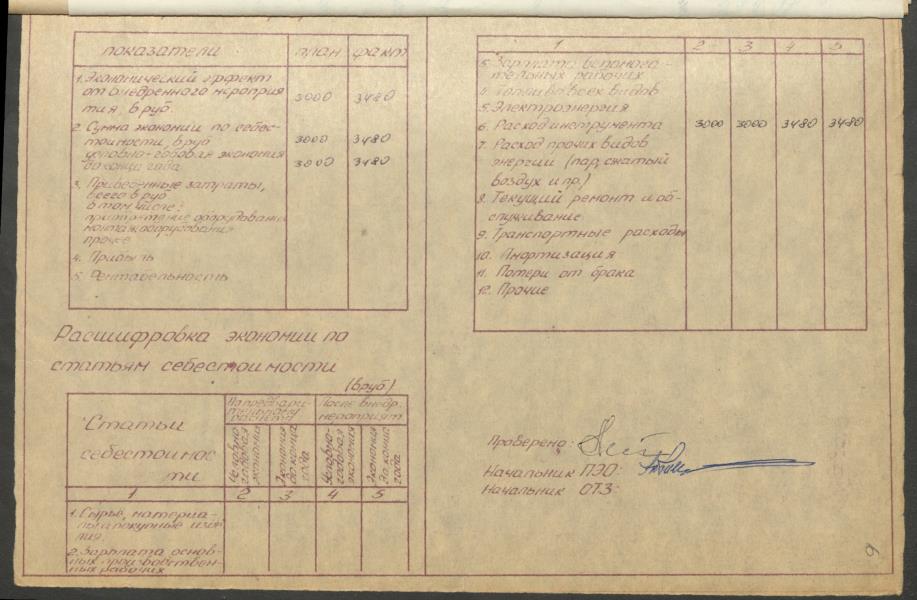 показатели план факт
1. Экономический эффект
от внедренного мероприя
тия, в руб. 3000 3480
2. Сумма экономии по себес-
тоимости, в руб 3000 3480
условно-годовая экономия
до конца года 3000 3480
3. Приведенные затраты,
всего в руб
в том числе:
приобретение оборудования
монтаж оборудования
прочее
4. Прибыль
5. Рентабельность
Расшифровка экономии по
статьям себестоимости
(в руб)
Статьи
себестоимос
ти
По предвари-
тельному
расчету
После внедр.
мероприят
Условно-
годовая
экономия
Экономия
до конца
года
Условно-
годовая
экономия
Экономия
до конца
года
1 2 3 4 5
1. Сырье, материа-
лы, покупные изде
лия.
2. Зарплата основ-
ных производствен-
ных рабочих
1 2 3 4 5
3. Зарплата вспомога-
тельных рабочих
4. Топливо всех видов
5. Электроэнергия
6. Расход инструмента 3000 3000 3480 3480
7. Расход прочих видов
энергии (пар, сжатый
воздух и пр.)
8. Текущий ремонт и об-
служивание
9. Транспортные расходы
10. Амортизация
11. Потери от брака
12. Прочие
Проверено:
Начальник ПЭО:
Начальник ОТЗ: